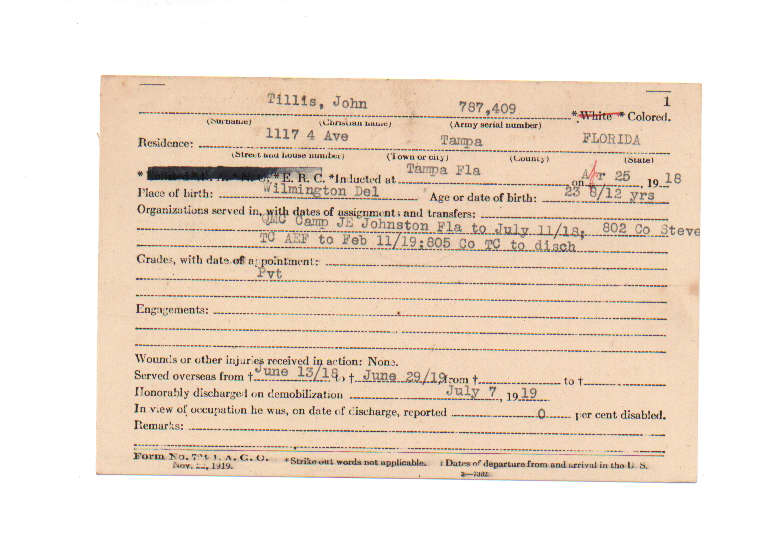 1
Tillis, John 787,409 * White * Colored.
(Surname) (Christian name) (Army serial number)
Residence: 1117 4 Ave Tampa FLORIDA
(Street and house number) (Town or city) (County) (State)
* E. R. C. *Inducted at Tampa Fla on Apr 25, 1918
Place of birth: Wilmington Del Age or date of birth: 23 8/12 yrs
Organizations served in, with dates of assignments and transfers:
QMC Camp JE Johnston Fla to July 11/18; 802 Co Steve
TC AEF to Feb 11/19;805 Co TC to disch
Grades, with date of appointment:
Pvt
Engagements:
Wounds or other injuries received in action: None.
Served overseas from † June 13/18 to † June 29/19 from † to †
Honorably discharged on demobilization July 7, 1919
In view of occupation he was, on date of discharge, reported 0 per cent disabled.
Remarks:
Form No. A. G. O. *Strike out words not applicable. † Dates of departure from and arrival in the U. S.
Nov. 1919.